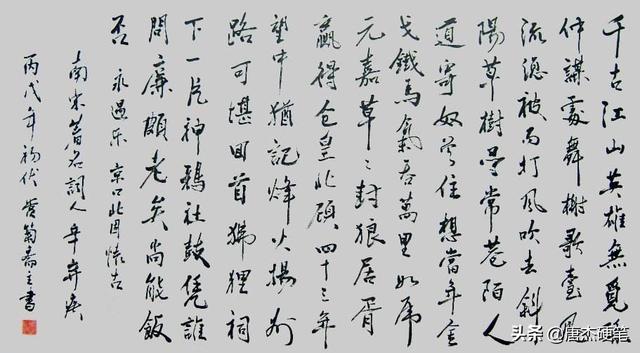 千古江山英雄無覓孫
仲謀處舞榭歌臺風
流總被雨打風吹去斜
陽草樹尋常巷陌人
道寄奴曾住想當年金
戈鐵馬氣吞萬里如虎
元嘉草〻封狼居胥
贏得仓皇北顧四十三年
望中猶記烽火揚州
路可堪回首狒狸祠
下一片神鴉社鼓凭誰
問廉頗老矣尚能飯
否 永遇乐 京口北固懷古
南宋著名詞人辛弃疾
丙戌年初伏翁斋主書
头条 @唐杰硬笔